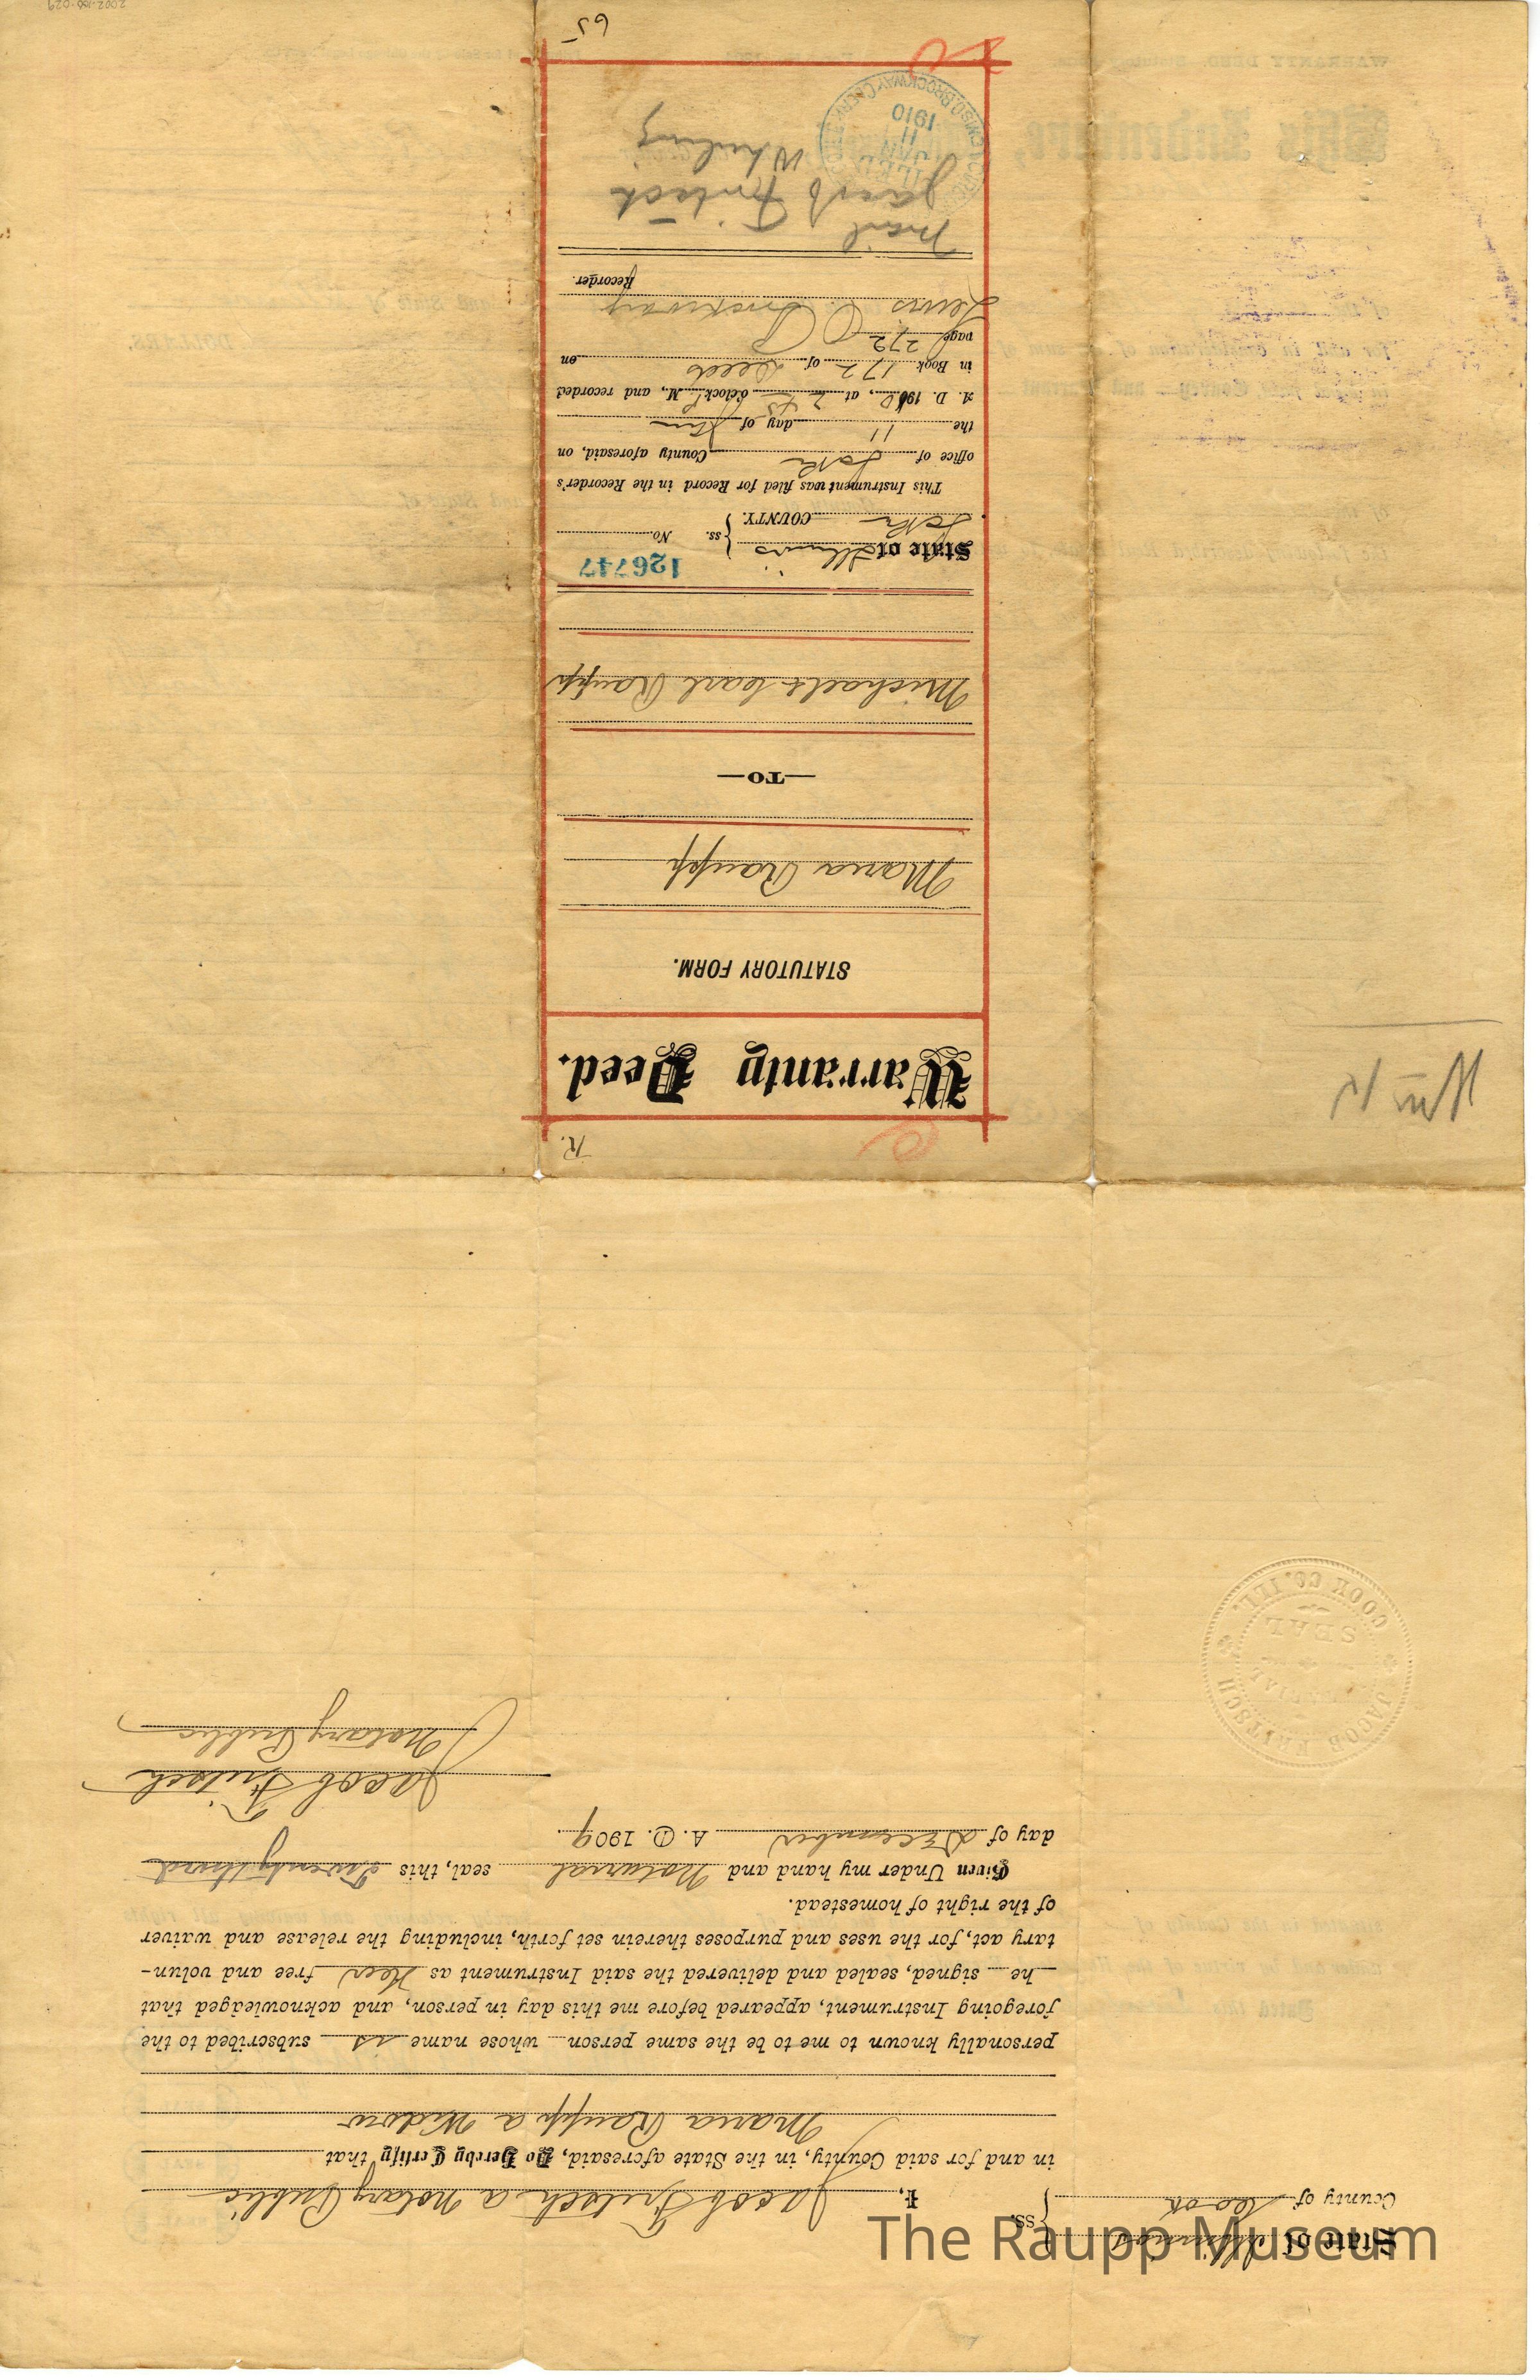 State of Illinois
County of Cook } ss.
I, Jacob Fritsch a Notary Public
in and for said County, in the State aforesaid, Do Hereby Certify that
Maria Raupp a Widow
personally known to me to be the same person whose name is subscribed to the
foregoing Instrument, appeared before me this day in person, and acknowledged that
he signed, sealed and delivered the said Instrument as Her free and volun-
tary act, for the uses and purposes therein set forth, including the release and waiver
of the right of homestead.
Given Under my hand and Notarial seal, this Twenty third
day of December A. D. 1909.
Jacob Fritsch
Notary Public
JACOB FRITSCH
NOTARIAL
SEAL
COOK CO. ILL.
R.
Warranty Deed.
STATUTORY FORM.
Maria Raupp
—TO—
Michael & Carl Raupp
126747
State of Illinois
Lake COUNTY. } ss. No.
This Instrument was filed for Record in the Recorder's
office of Lake County aforesaid, on
the 11 day of Jan
A. D. 1910, at 2 45 o'clock P. M., and recorded
in Book 172 of Deeds on
page 272
Lewis O. Brockway
Recorder.
Mail
Jacob Fritsch
Wheeling
FILED
JAN
11
1910
65
2002.100.029
The Raupp Museum